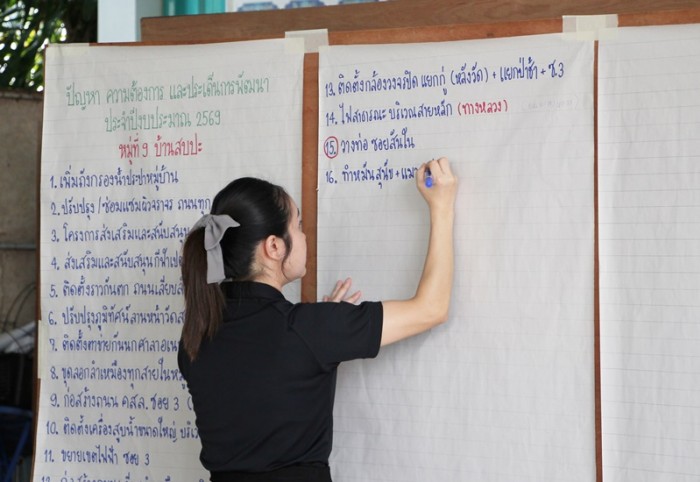 ปัญหา ความต้องการ และประเด็นการพัฒนา
ประจำปีงบประมาณ 2569
หมู่ที่ 9 บ้านสบปะ
1. เพิ่มถังกรองน้ำประปาหมู่บ้าน
2. ปรับปรุง/ซ่อมแซมผิวจราจร ถนนทุก
3. โครงการส่งเสริมและสนับสนุน
4. ส่งเสริมและสนับสนุนกีฬาเปตอง
5. ติดตั้งราวกันตก ถนนเลียบ
6. ปรับปรุงภูมิทัศน์ลานหน้าวัด
7. ติดตั้งตาข่ายกันนกศาลาอเนก
8. ขุดลอกลำเหมืองทุกสายในหมู่
9. ก่อสร้างถนน คสล. ซอย 3
10. ติดตั้งเครื่องสูบน้ำขนาดใหญ่ บริเว
11. ขยายเขตไฟฟ้า ซอย 3
12. ก่อสร้างถนน
13. ติดตั้งกล้องวงจรปิด แยกกู่ (หลังวัด) + แยกป่าช้า + ซ.3
14. ไฟสาธารณะ บริเวณสายหลัก (ทางหลวง)
15. วางท่อ ซอยสันใน
16. ทำหมันสุนัข + แมว